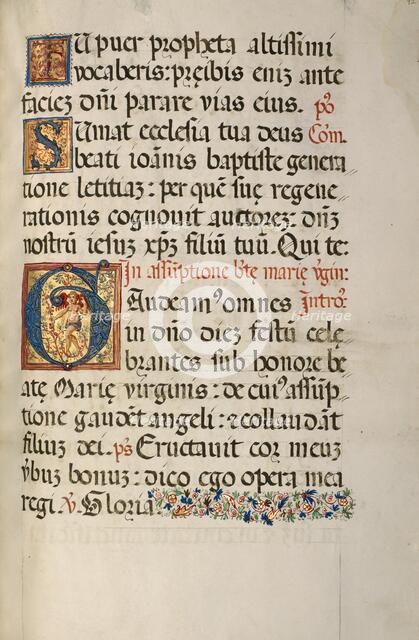 92
Tu puer propheta altissimi
vocaberis: preibis eniz ante
faciez dñi parare vias eius. po
Sumat ecclesia tua deus Com.
beati ioãnis baptiste genera
tione letitiaz: per quẽ suę regene
rationis cognouit auctorez: dñz
nostrũ iesuz xpz filiũ tuũ. Qui te:
In assũptione bte marię v̾gin:
Gaudeamꝰ omnes Introꝰ
in dño diez festũ cele
brantes sub honore be
ate Marię virginis: de cuiꝰ assũp
tione gaudẽt angeli: ⁊ collaudãt
filiuz dei. ps Eructauit cor meuz
v̾buz bonuz: dico ego opera mea
regi ℣. Gloria
heritage